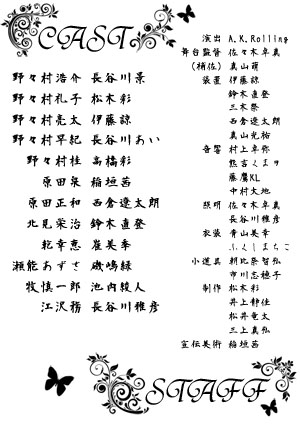 CAST
野々村浩介 長谷川景
野々村礼子 松木彩
野々村亮太 伊藤諒
野々村早紀 長谷川あい
野々村桂 高橋彩
原田泉 稲垣茜
原田正和 西倉遼太朗
北見栄治 鈴木直登
乾幸恵 崔美幸
瀬能あずさ 磯嶋緑
牧慎一郎 池内綾人
江沢務 長谷川雅彦
演出 A.K.Rolling
舞台監督 佐々木卓真
(補佐) 真山萌
装置 伊藤諒
鈴木直登
三木祭
西倉遼太朗
真山光祐
音響 村上卓弥
熊吉くまヲ
藤鷹KL
中村大地
照明 佐々木卓真
長谷川雅彦
衣装 青山美幸
ふくしまちこ
小道具 朝比奈智弘
市川志穂子
制作 松木彩
井上静佳
松井竜太
三上真弘
宣伝美術 稲垣茜
STAFF